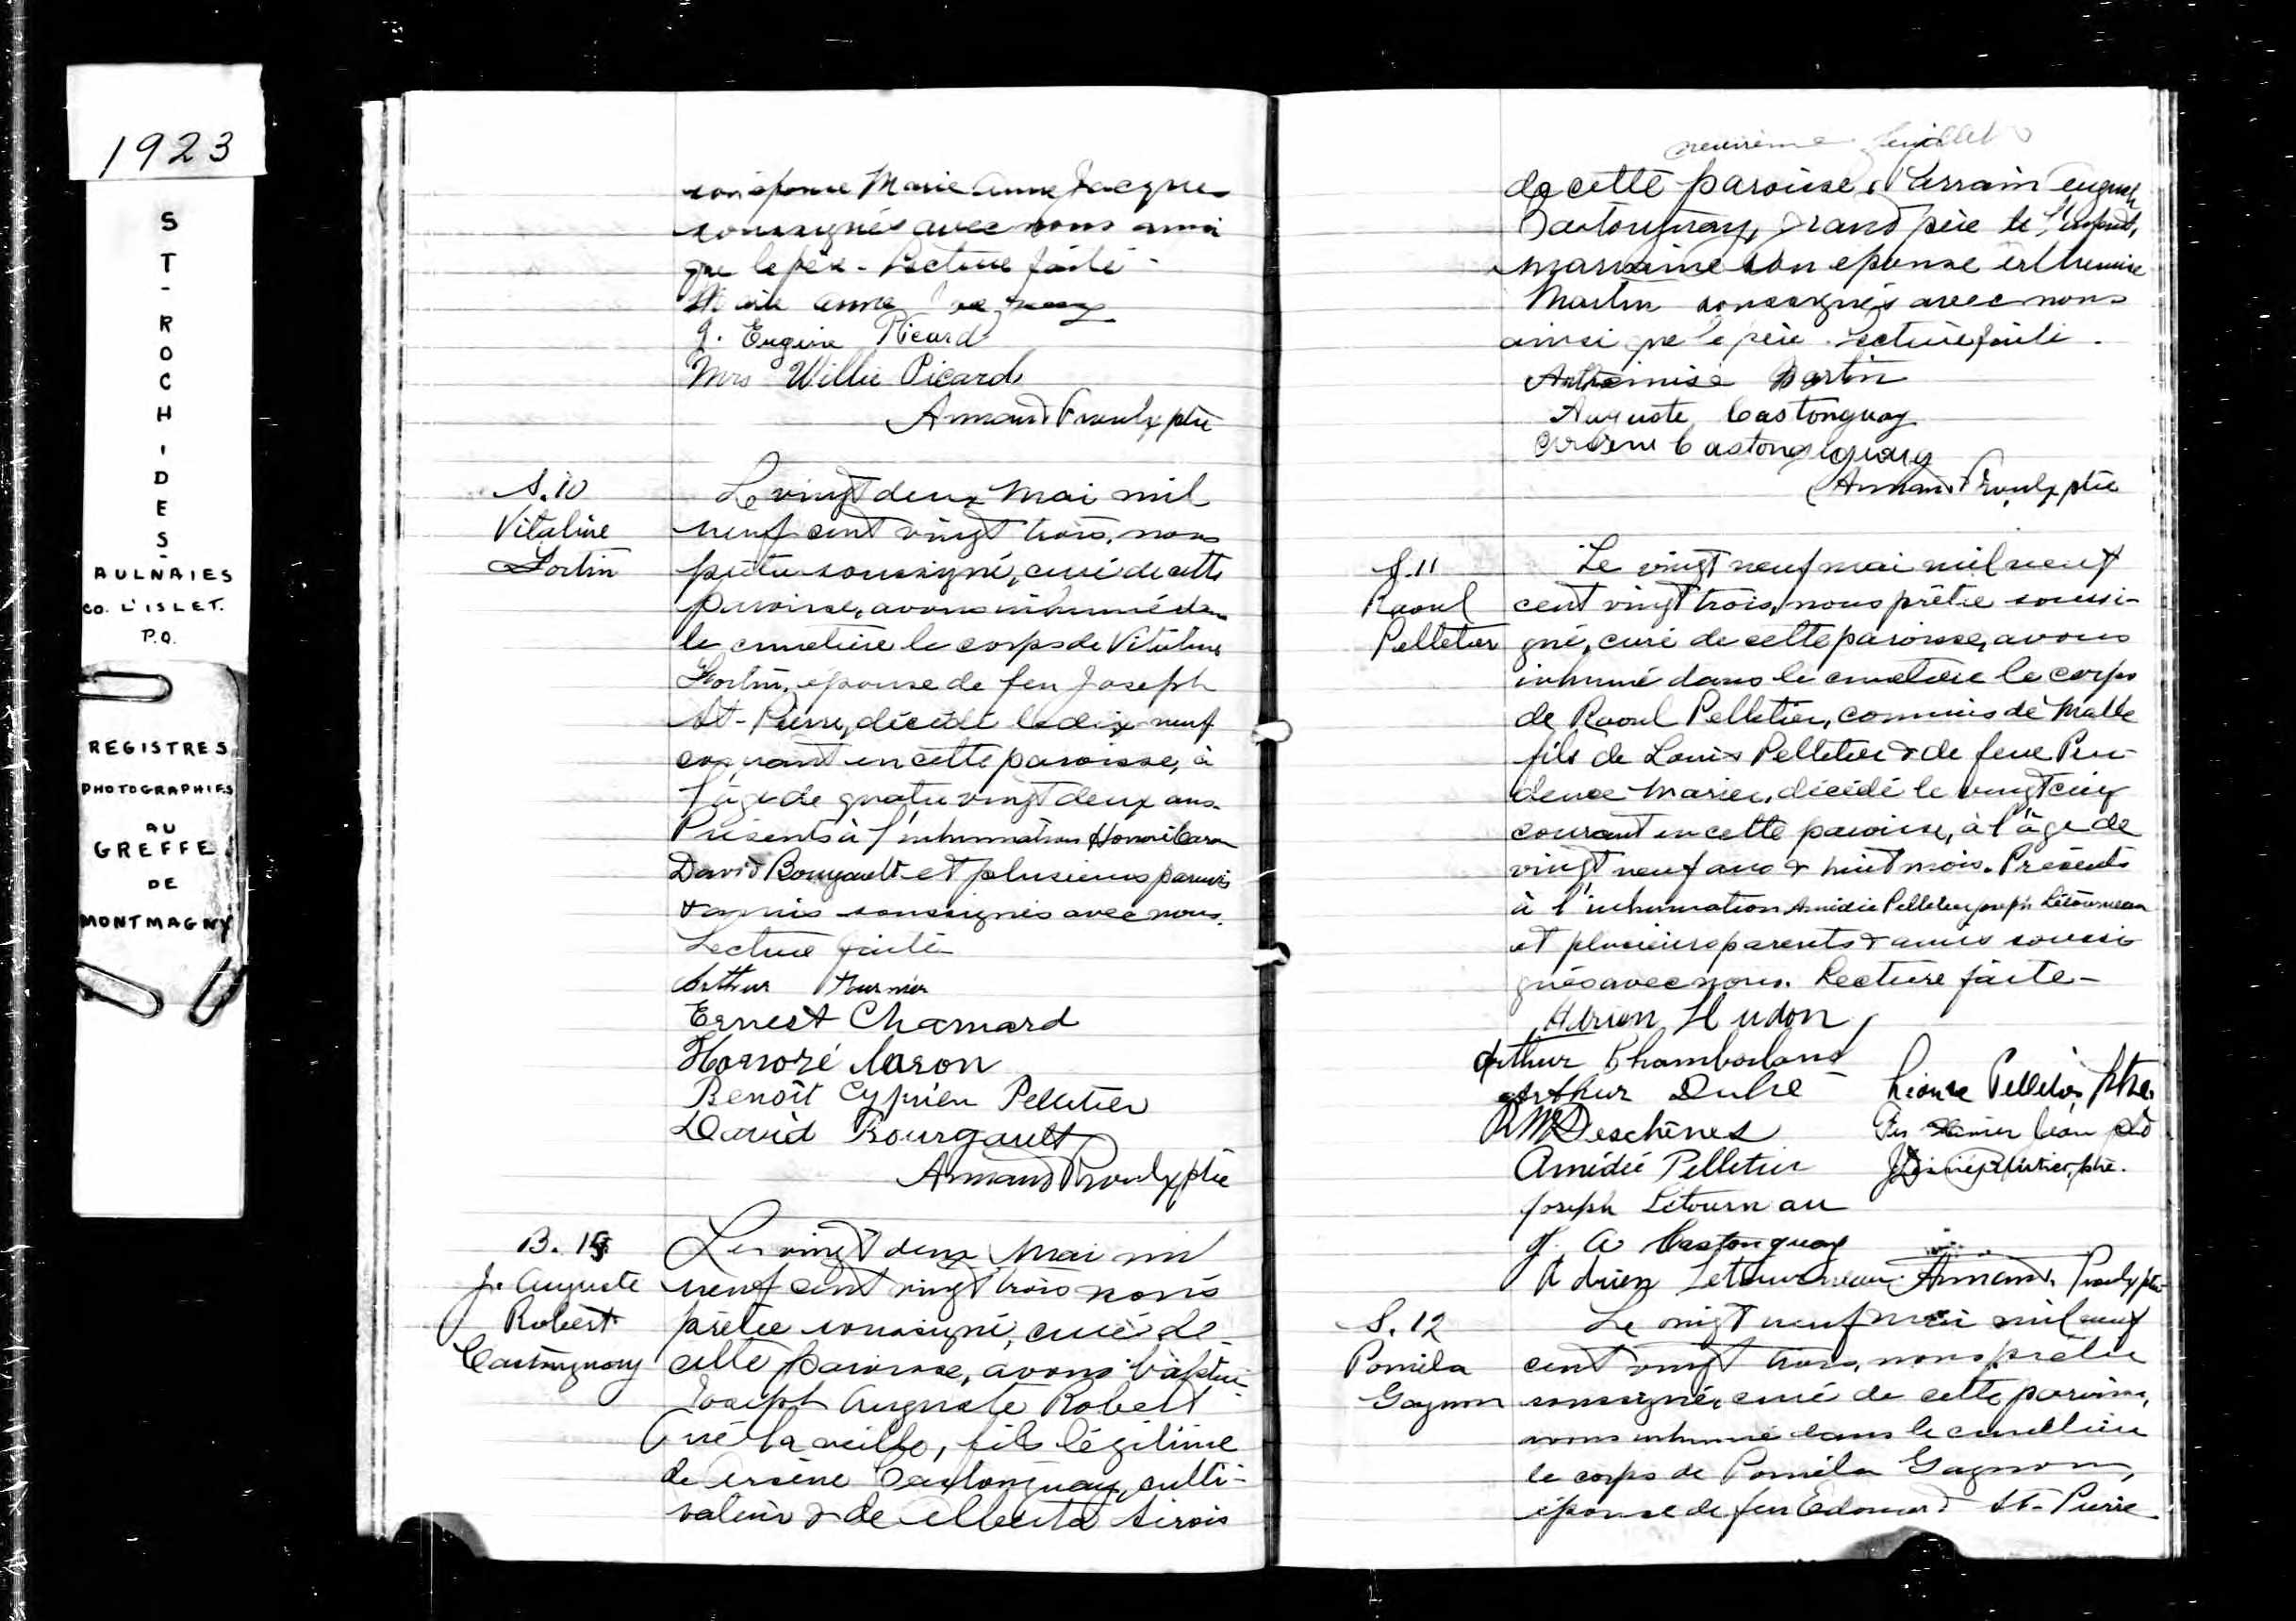 1923
ST-ROCH-DES-
AULNAIES
CO. L'ISLET.
P.Q.
REGISTRES
PHOTOGRAPHIES
AU
GREFFE
DE
MONTMAGNY
son épouse Marie Anne Jacques
soussignés avec nous ainsi
que le père. Lecture faite -
Marie Anne
J. Eugène Picard
Mrs Willie Picard
Armand Proulx ptre
S. 10
Vitaline
Fortin
Le vingt deux Mai mil
neuf cent vingt trois, nous
prêtre soussigné, curé de cette
paroisse, avons inhumé dans
le cimetière le corps de Vitaline
Fortin, épouse de feu Joseph
St-Pierre, décédée le dix-neuf
courant en cette paroisse, à
l'âge de quatre vingt deux ans.
Présents à l'inhumation Honoré Caron
David Bourgault et plusieurs parents
& amis soussignés avec nous.
Lecture faite
Arthur Fournier
Ernest Chamard
Honoré Caron
Benoît Cyprien Pelletier
David Bourgault
Armand Proulx ptre
B. 15
J. Auguste
Robert
Castonguay
Le vingt deux Mai mil
neuf cent vingt trois nous
prêtre soussigné, curé de
cette paroisse, avons baptisé
Joseph Auguste Robert
né la veille, fils légitime
de Arsène Castonguay, culti-
vateur & de Alberta Sirois
feuillet
de cette paroisse. Parrain Auguste
Castonguay, grand père de l'enfant,
marraine son épouse Arthémise
Martin soussignés avec nous
ainsi que le père. Lecture faite.
Arthémise Martin
Auguste Castonguay
Arsène Castonguay
Armand Proulx ptre
S. 11
Raoul
Pelletier
Le vingt neuf mai mil neuf
cent vingt trois, nous prêtre soussi-
gné, curé de cette paroisse, avons
inhumé dans le cimetière le corps
de Raoul Pelletier, commis de Malle
fils de Louis Pelletier & de feue Pru-
dence Marier, décédé le vingt cinq
courant en cette paroisse, à l'âge de
vingt neuf ans & huit mois. Présents
à l'inhumation Amédée Pelletier Joseph Létourneau
et plusieurs parents & amis soussi-
gnés avec nous. Lecture faite -
Adrien Hudon
Arthur Chamberland
Arthur Dubé
Léonce Pelletier, ptre.
Deschênes
Amédée Pelletier
Pelletier, ptre.
Joseph Létournau
J. A Castonguay
Adrien Letourneau Armand Proulx ptre
S. 12
Poméla
Gagnon
Le vingt neuf mai mil neuf
cent vingt trois, nous prêtre
soussigné, curé de cette paroisse,
avons inhumé dans le cimetière
le corps de Poméla Gagnon,
épouse de feu Edouard St-Pierre